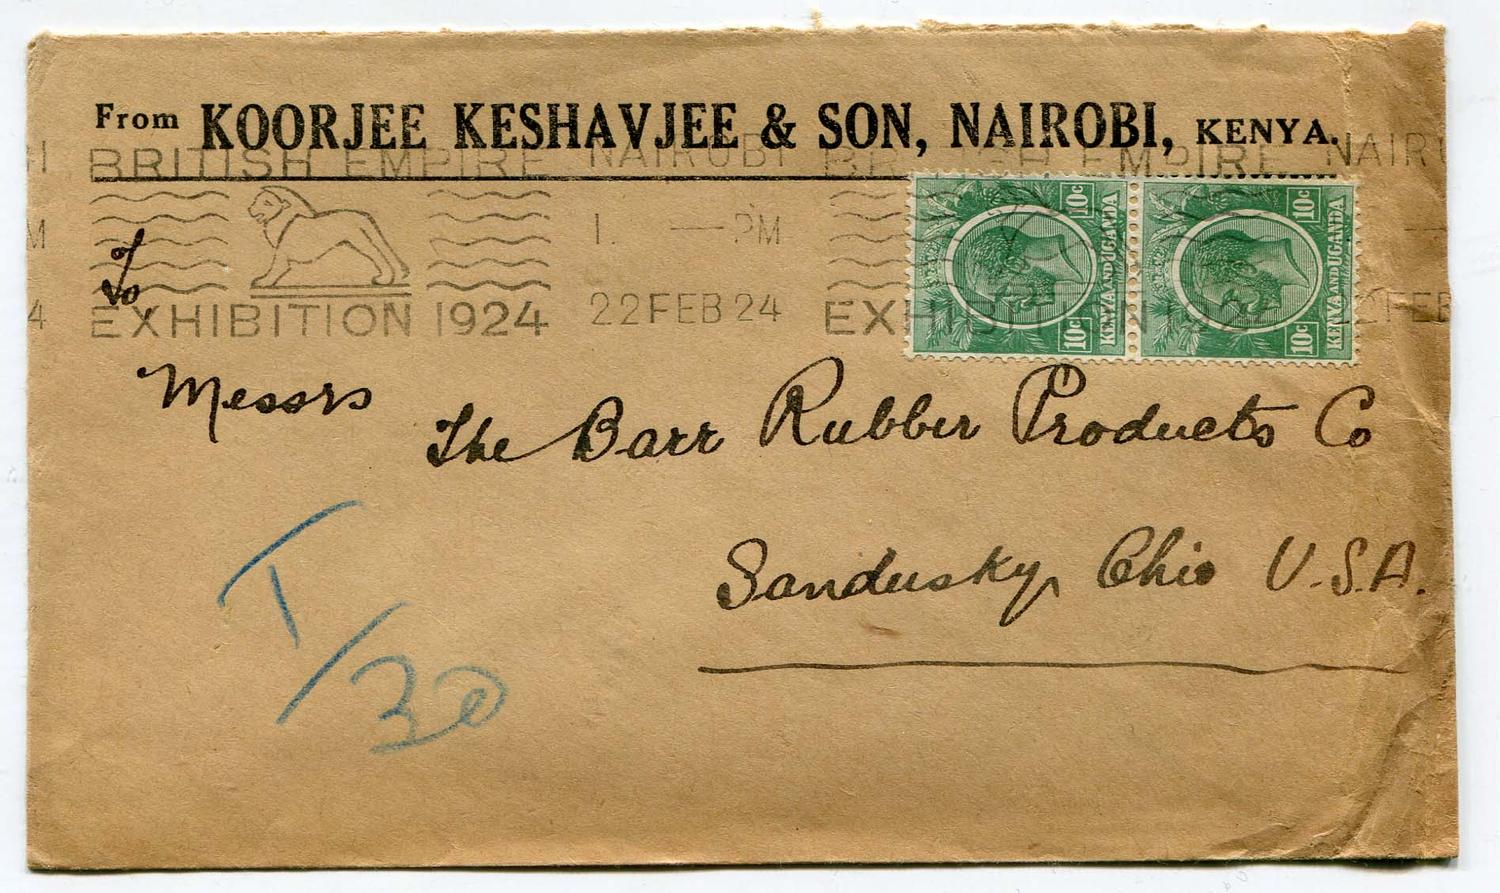 From KOORJEE KESHAVJEE & SON, NAIROBI, KENYA.
BRITISH EMPIRE NAIROBI BRITISH EMPIRE NAIR
1. — PM
EXHIBITION 1924 22 FEB 24 EXHIBITION 1924 22 FEB
10c KENYA AND UGANDA 10c
10c KENYA AND UGANDA 10c
To,
Messrs
The Barr Rubber Products Co
Sandusky, Ohio U.S.A.
T/30